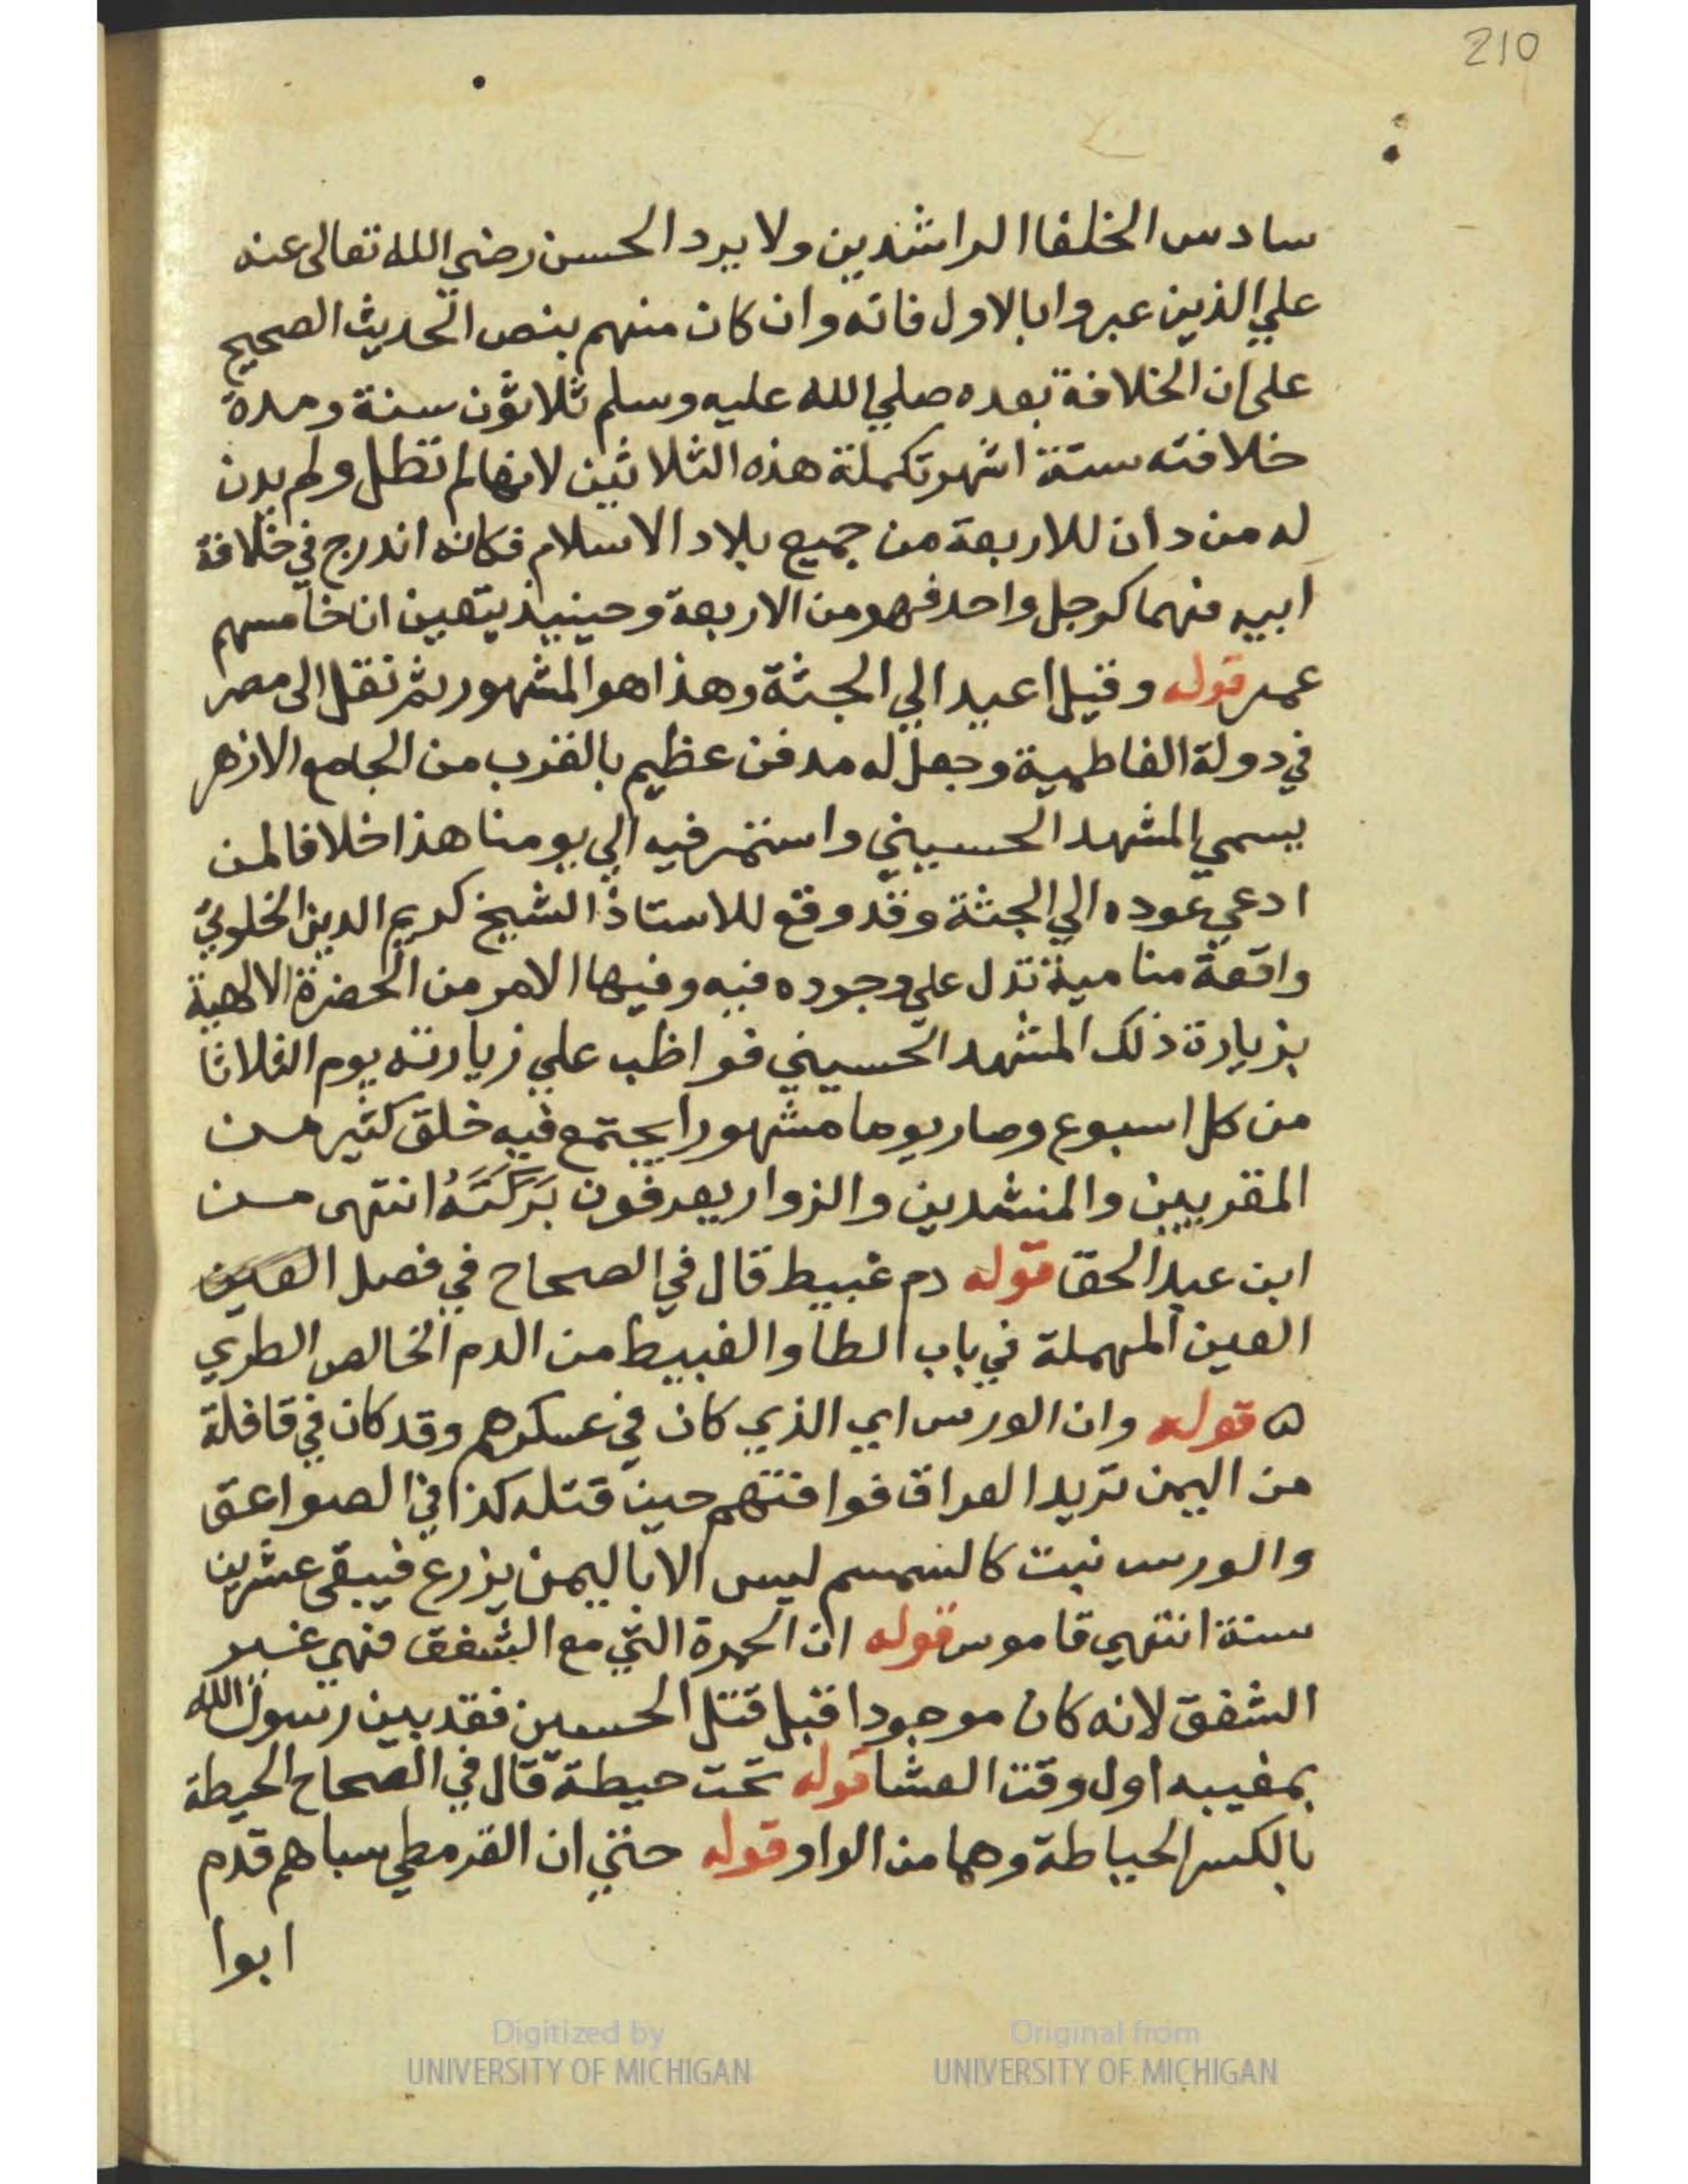 210
سادس الخلفا الراشدين ولا يرد الحسن رضي الله تعالى عنه
علي الذين عبروا بالاول فانه وان كان منهم بنص الحديث الصحيح
على ان الخلافة بعده صلي الله عليه وسلم ثلاثون سنة ومدة
خلافته ستة اشهر تكملة هذه الثلاثين لانها لم تطل ولم يدن
له من دان للاربعة من جميع بلاد الاسلام فكانه اندرج في خلافة
ابيه فهما كرجل واحد فهو من الاربعة وحينيذ يتعين ان خامسهم
عمر قوله وقيل اعيد الي الجثة وهذا هو المشهور ثم نقل الى مصر
في دولة الفاطمية وجعل له مدفن عظيم بالقرب من الجامع الازهر
يسمي المشهد الحسيني واستمر فيه الي يومنا هذا خلافا لمن
ادعي عوده الي الجثة وقد وقع للاستاذ الشيخ كريم الدين الخلوتي
واقعة منامية تدل علي وجوده فيه وفيها الامر من الحضرة الالهية
بزيارة ذلك المشهد الحسيني فواظب علي زيارته يوم الثلاثا
من كل اسبوع وصار يوما مشهورا يجتمع فيه خلق كثير من
المقريين والمنشدين والزوار يعرفون بَرَكَتَهُ انتهى من
ابن عبد الحق قوله دم عبيط قال في الصحاح في فصل العين
العين المهملة في باب الطا والعبيط من الدم الخالص الطري
ه قوله وان الورس اي الذي كان في عسكرهم وقد كان في قافلة
من اليمن تريد العراق فوافتهم حين قتله كذا في الصواعق
والورس نبت كالسمسم ليس الا باليمن يزرع فيبقى عشرين
سنة انتهي قاموس قوله ان الحمرة التي مع الشفق فهي غير
الشفق لانه كان موجودا قبل قتل الحسين فقد بين رسول الله
بمغيبه اول وقت العشا قوله تحت حيطة قال في الصحاح الحيطة
بالكسر الحياطة وهما من الواو قوله حتي ان القرمطي سباهم قدم
ابوا
Digitized by
UNIVERSITY OF MICHIGAN
Original from
UNIVERSITY OF MICHIGAN